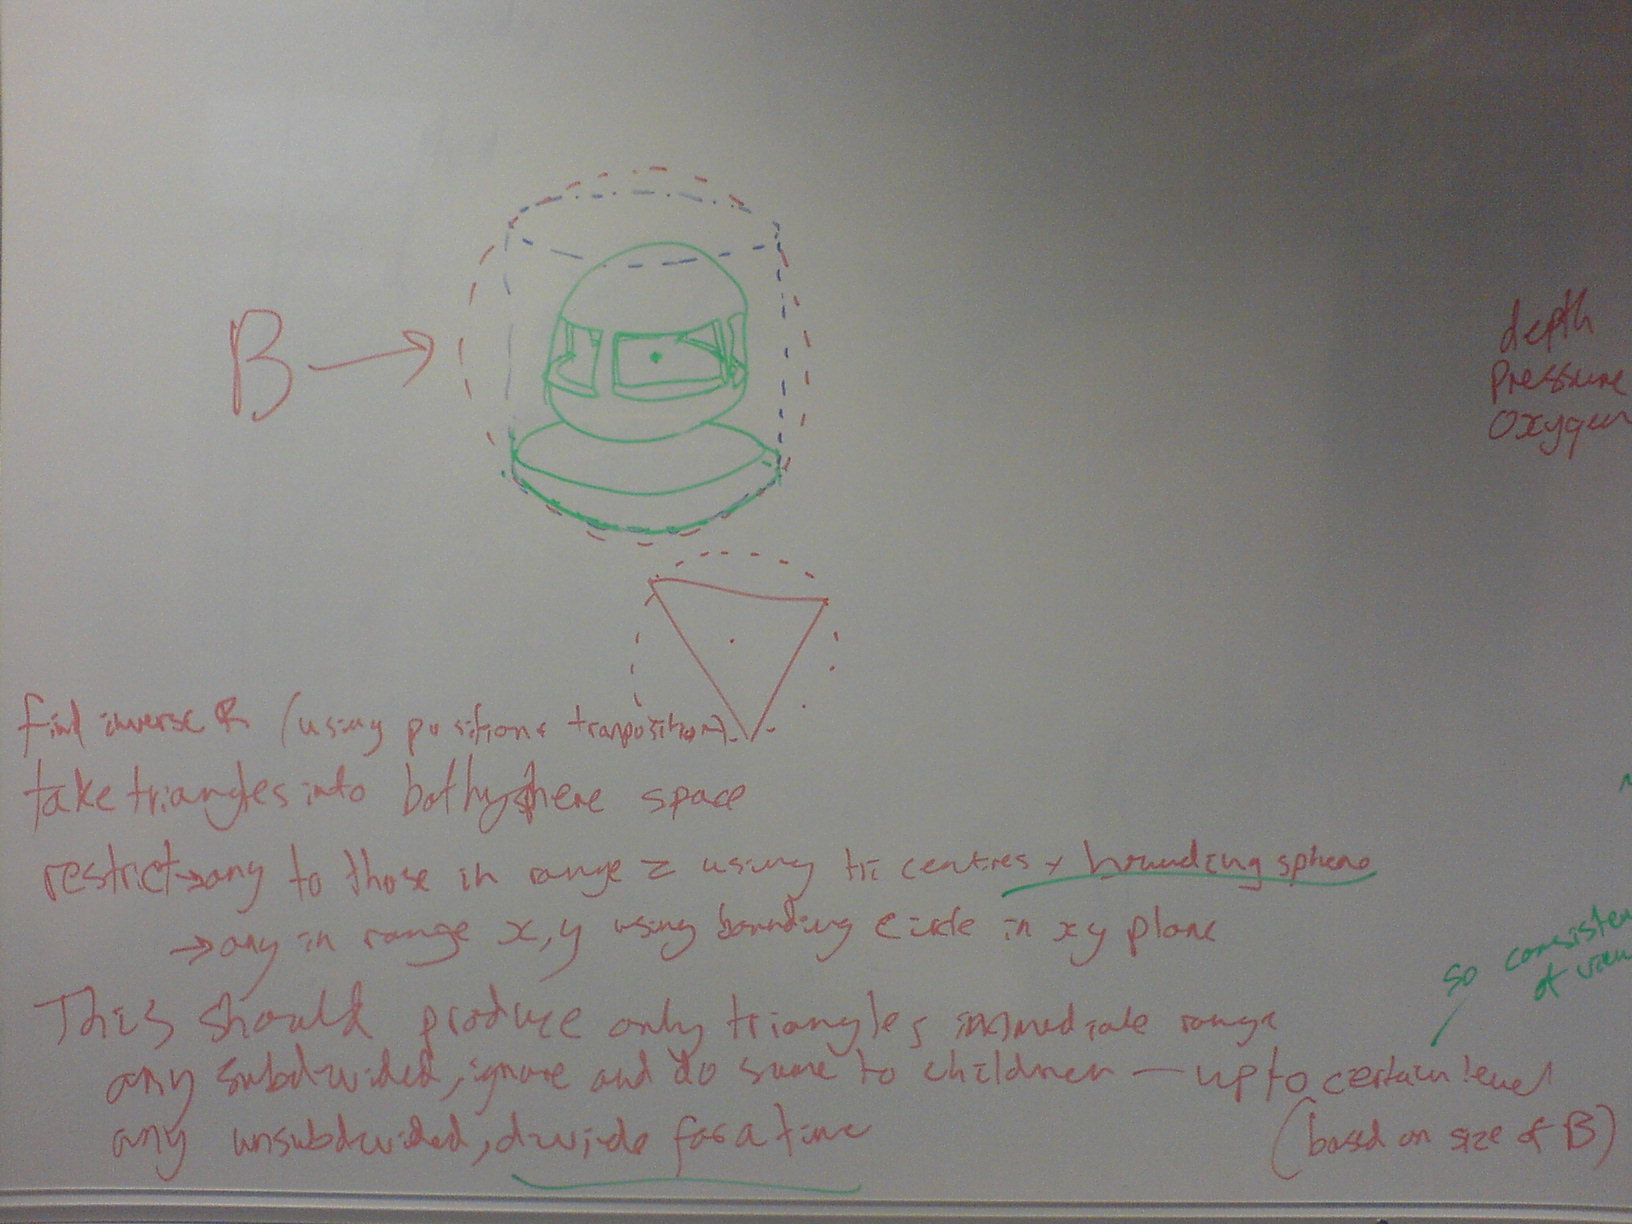 B
depth
Pressure
Oxygen
find inverse (using position & tranposition)
take triangles into bathysphere space
restrict → any to those in range z using tri centres + bounding sphere
→ any in range x, y using bounding circle in xy plane
so consisten
of view
This should produce only triangles immediate range
any subdivided, ignore and do same to children — up to certain level
any unsubdivided, divide for a time
(based on size of B)